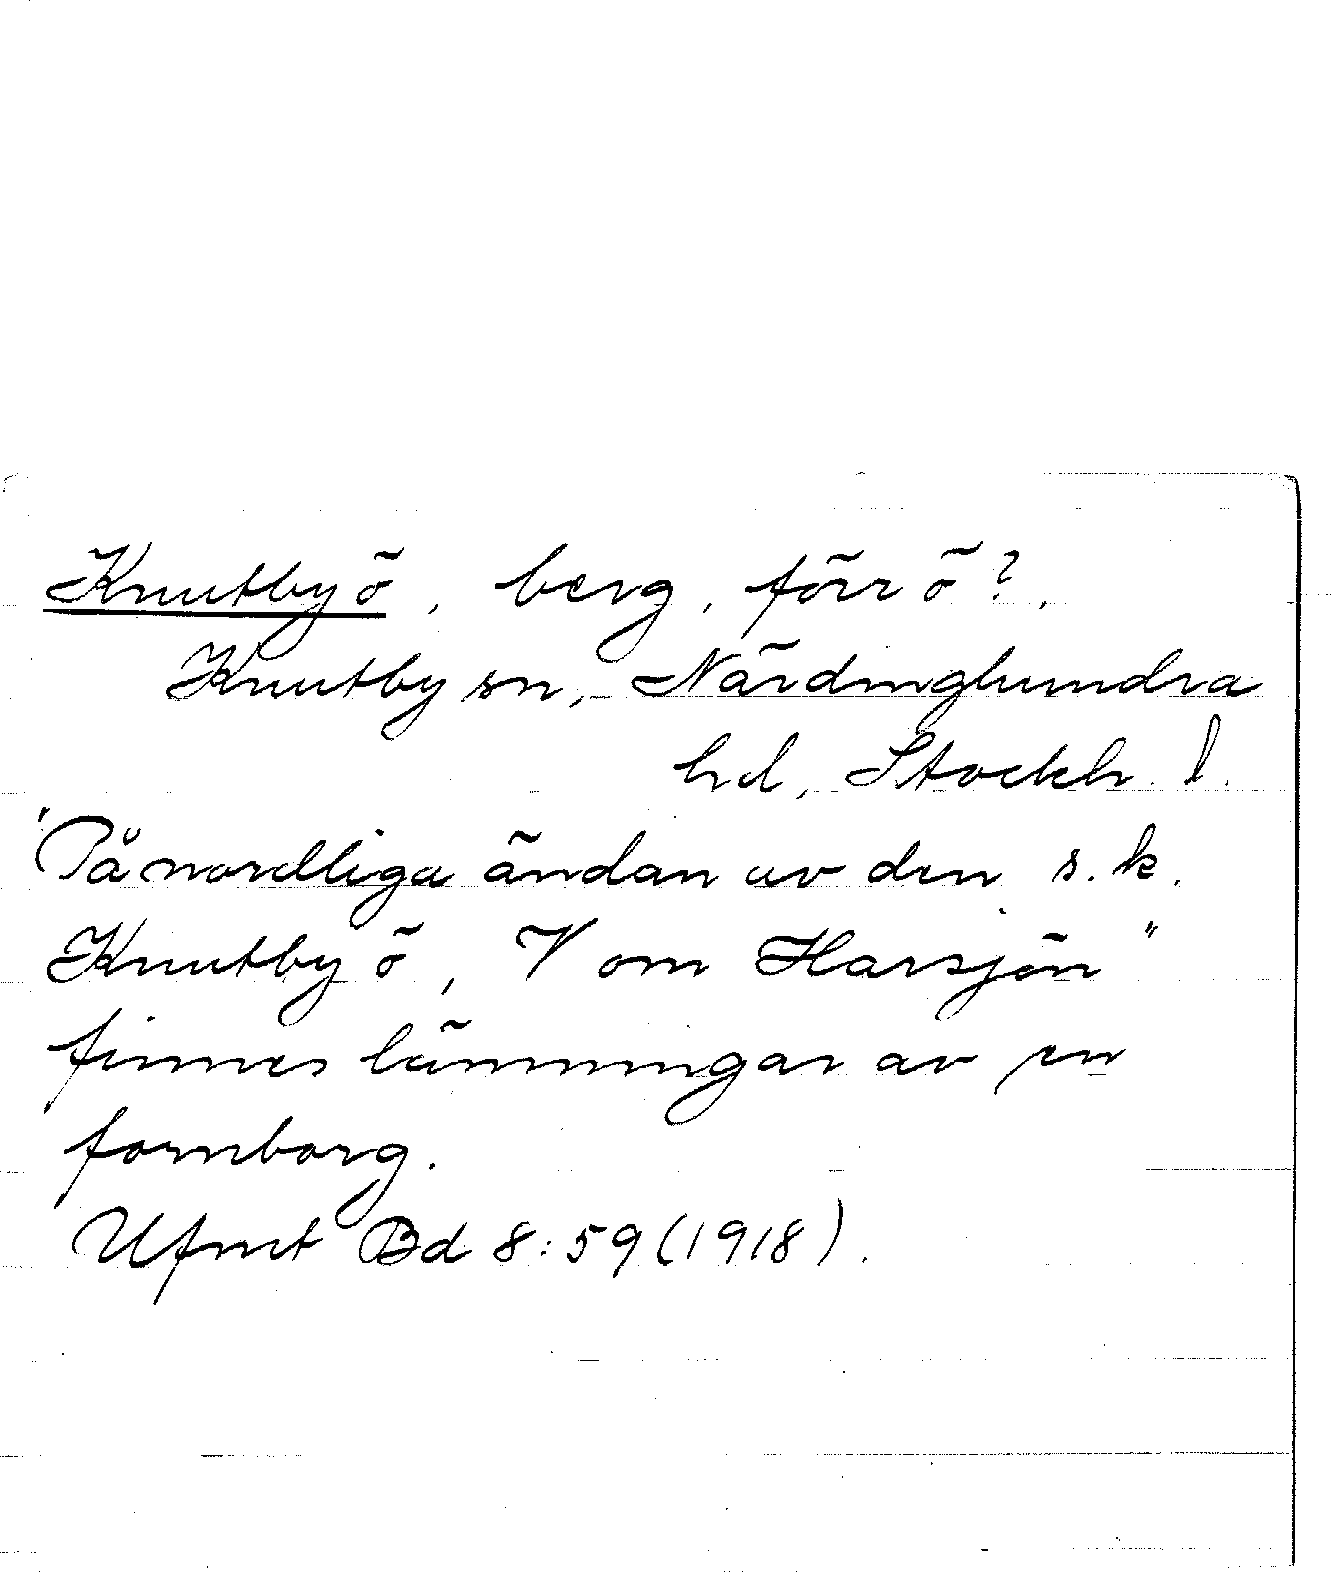 Knutby ö, berg, förr ö?,
Knutby sn, Närdinghundra
hd, Stockh. l.
"På nordliga ändan av den s.k.
Knutby ö, V om Harsjön"
finnes lämningar av en
fornborg.
Ufmt Bd 8:59 (1918).